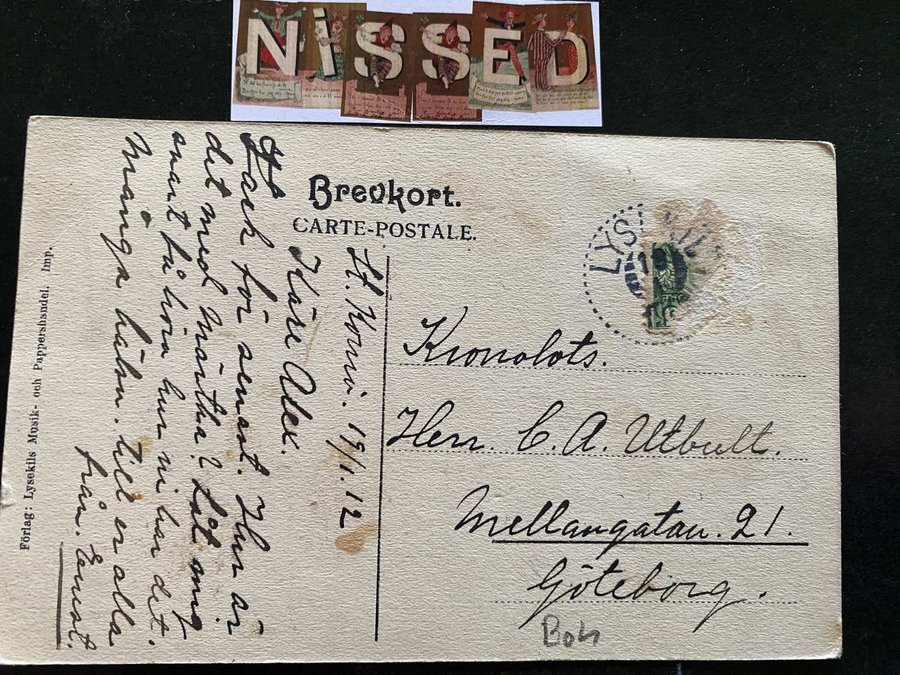 NISSED
Brevkort.
CARTE-POSTALE.
LYS
Kronolots.
Herr. C. A. Utbult.
Mellangatan. 21.
Göteborg.
Boh
St. Kornö. 19/1.12
Käre Alex.
Tack för senast. Hur är
det med Märtha? Låt mig
snart få höra hur ni har det.
Många hälsn. till er alla
från. Ernst.
Förlag: Lysekils Musik- och Pappershandel. Imp.